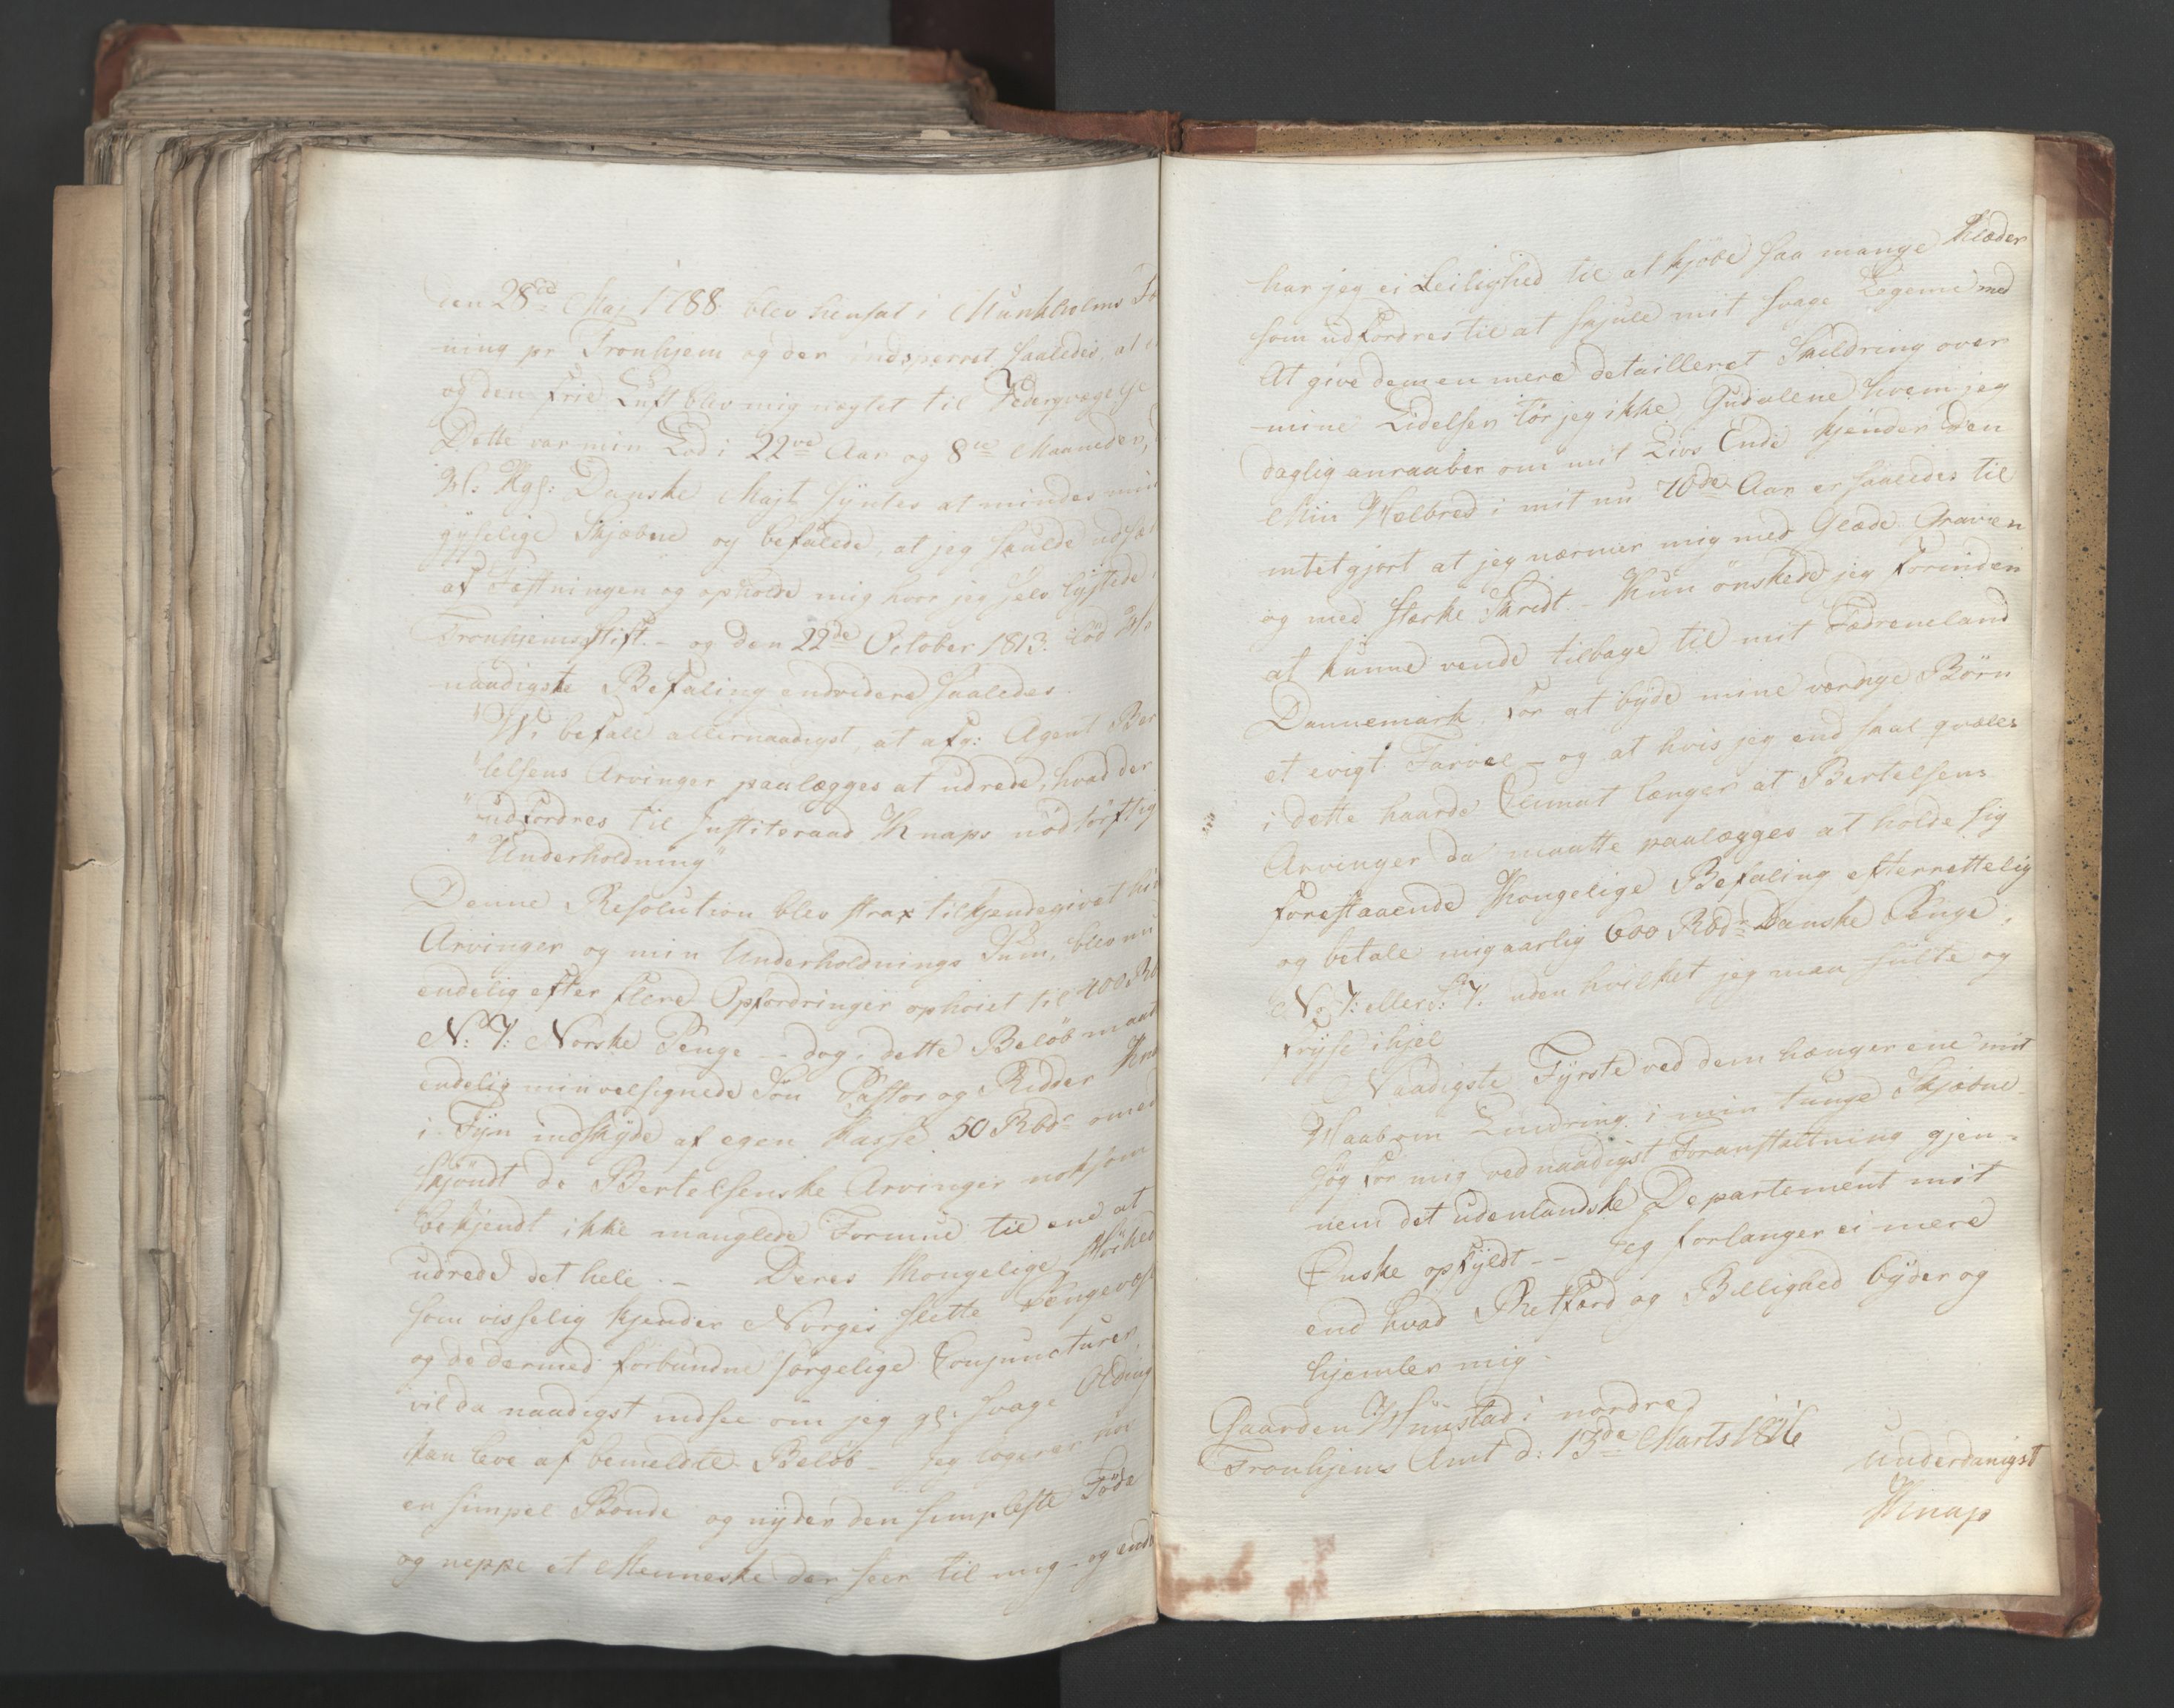 den 28de Maj 1788 blev hensat i Munkholms Fæ
ning pr Tronhjem og der indsperret saaledes, at
og den frie Luft blev mig nægtet til Vederqvægelse
Dette var min Lod i 22ve Aar og 8te Maaneder,
Hs: Kgl: Danske Majt syntes at mindes min
gyselige Skjæbne og befalede, at jeg skulde udsæt
af Fæstningen og opholde mig hvor jeg selv lystede
Tronhjems Stift. – og den 22de October 1813. lød Hs
naadigste Befaling endvidere saaledes.
"Vi befale allernaadigst, at afg: Agent Ber
"telsens Arvinger paalægges at udrede, hvad der
"udfordres til Justitsraad Knaps nødtørftig
"Underholdning"
Denne Resolution blev strax tilkjendegivet his
Arvinger og min Underholdnings Sum, blev nu
endelig efter flere Opfordringer ophøiet til 400 Rb
N: V: Norske Penge – dog i dette Beløb maat
endelig min velsignede Søn Pastor og Ridder Kna
i Fyn indskyde af egen Kasse 50 Rbdr
skjøndt de Bertelsenske Arvinger noksom
bekjendt ikke manglede Formue til ene at
udrede det hele. – Deres Kongelige Høihed
som visselig kjender Norges slette Pengevæs
og de dermed forbundne sørgelige Conjuncturer,
vil da naadigst indsee om jeg gl: svage Olding
kan leve af bemeldte Beløb – Jeg logerer hos
en simpel Bonde og nyder den simpleste Føde
og neppe et Menneske der seer til mig – og endn
har jeg ei Leilighed til at kjøbe saa mange Klæder
som udfordres til at skjule mit svage Legeme med
At give dem en mere detailleret Skildring over
mine Lidelser tør jeg ikke, Gud alene hvem jeg
daglig anraaber om mit Livs Ende kjender den
Min Helbred i mit nu 70de Aar er saaledes til
intetgjort at jeg nærmer mig med Glæde Graven
og med stærke Skridt. – Kun ønskede jeg forinden
at kunne vende tilbage til mit Fædreneland
Dannemark, for at byde mine værdige Børn
et evigt Farvel – og at hvis jeg end skal qvæles
i dette haarde Climat længer at Bertelsens
Arvinger da maatte paalægges at holde sig
forestaaende Kongelige Befaling efterrettelig
og betale mig aarlig 600 Rbdr Danske Penge,
N: V: eller S: V: uden hvilket jeg maa sulte og
fryse ihjel
Naadigste Fyrste ved dem hænger ene mit
Haab om Lindring i min tunge Skjæbne
søg for mig ved naadigst Foranstaltning gjen-
nem det udenlandske Departement mit
Ønske opfyldt – Jeg forlanger ei mere
end hvad Retfærd og Billighed byder og
hjemler mig.
Gaarden Hunstad i nordre
Tronhjems Amt d: 13de Marts 1816
underdanigst
Knap